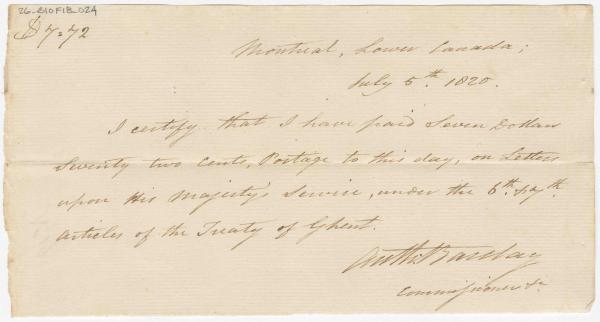 26-S10F1B_024
$7=72
Montreal, Lower Canada;
July 5th. 1820.
I certify that I have paid Seven Dollars
Seventy two Cents, Postage to this day, on Letters
upon His Majesty's Service, under the 6th. & 7th.
Articles of the Treaty of Ghent.
Anth. Barclay
Commissioner &c